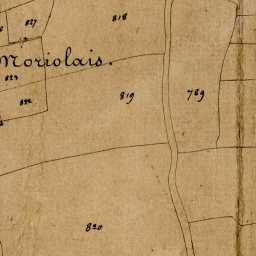 818
827
Moriolais.
823
822
819
789
820